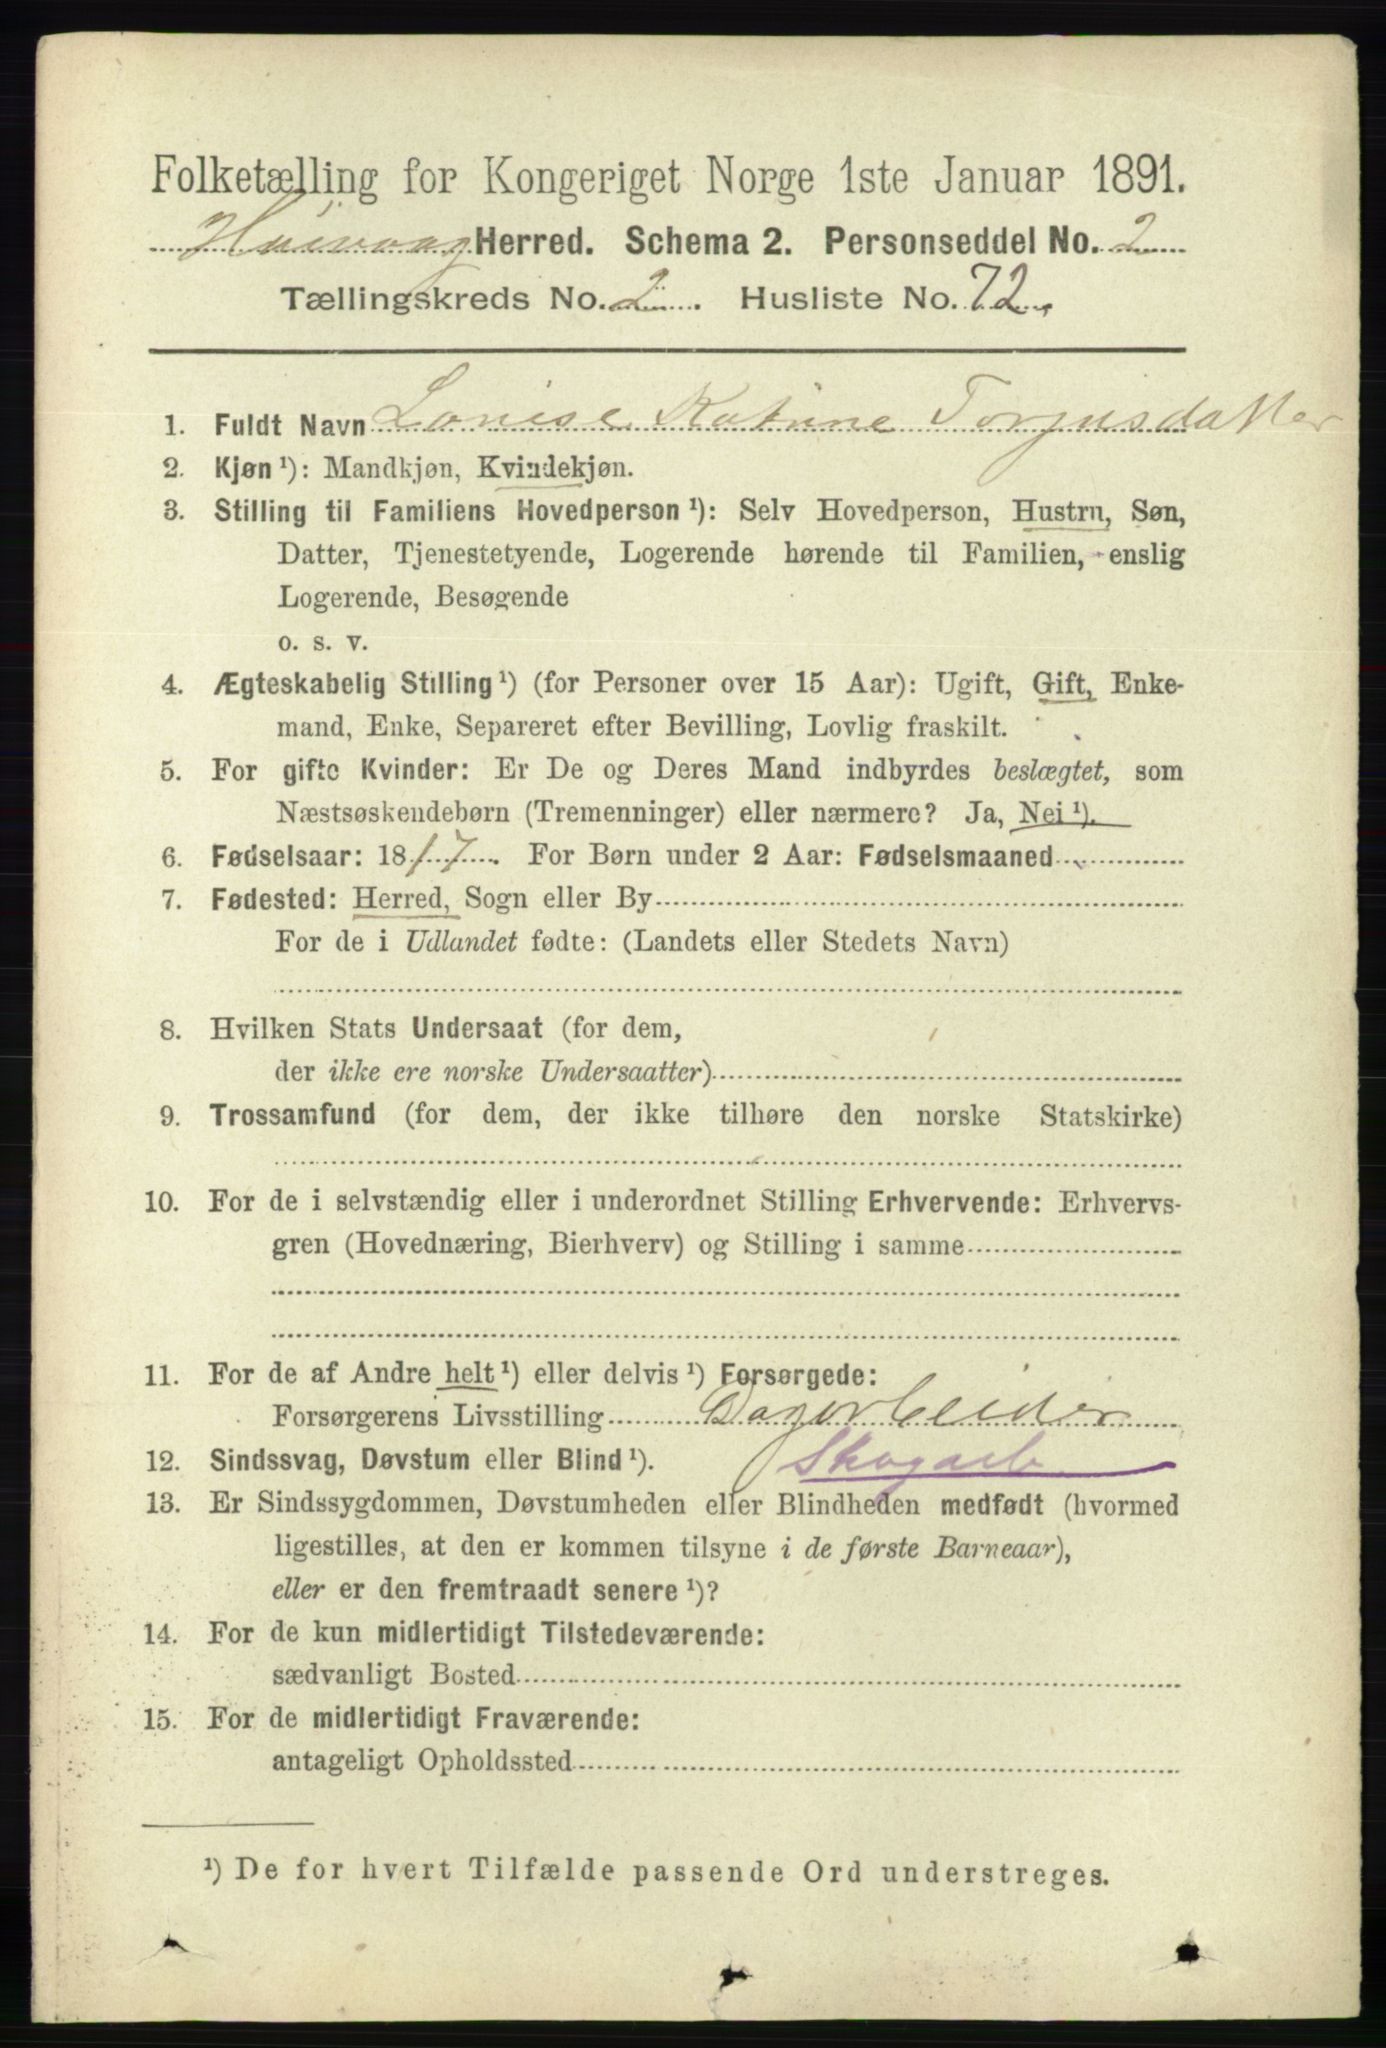 Folketælling for Kongeriget Norge 1ste Januar 1891.
Høivaag Herred. Schema 2. Personseddel No. 2
Tællingskreds No. 2. Husliste No. 72.
1. Fuldt Navn Lovise Katrine Torjusdatter
2. Kjøn ¹): Mandkjøn, Kvindekjøn.
3. Stilling til Familiens Hovedperson ¹): Selv Hovedperson, Hustru, Søn,
Datter, Tjenestetyende, Logerende hørende til Familien, enslig
Logerende, Besøgende
o. s. v.
4. Ægteskabelig Stilling ¹) (for Personer over 15 Aar): Ugift, Gift, Enke-
mand, Enke, Separeret efter Bevilling, Lovlig fraskilt.
5. For gifte Kvinder: Er De og Deres Mand indbyrdes beslægtet, som
Næstsøskendebørn (Tremenninger) eller nærmere? Ja, Nei ¹).
6. Fødselsaar: 1817. For Børn under 2 Aar: Fødselsmaaned
7. Fødested: Herred, Sogn eller By
For de i Udlandet fødte: (Landets eller Stedets Navn)
8. Hvilken Stats Undersaat (for dem,
der ikke ere norske Undersaatter)
9. Trossamfund (for dem, der ikke tilhøre den norske Statskirke)
10. For de i selvstændig eller i underordnet Stilling Erhvervende: Erhvervs-
gren (Hovednæring, Bierhverv) og Stilling i samme
11. For de af Andre helt ¹) eller delvis ¹) Forsørgede:
Forsørgerens Livsstilling Dagarbeider
12. Sindssvag, Døvstum eller Blind ¹). Skogarb
13. Er Sindssygdommen, Døvstumheden eller Blindheden medfødt (hvormed
ligestilles, at den er kommen tilsyne i de første Barneaar),
eller er den fremtraadt senere ¹)?
14. For de kun midlertidigt Tilstedeværende:
sædvanligt Bosted
15. For de midlertidigt Fraværende:
antageligt Opholdssted
¹) De for hvert Tilfælde passende Ord understreges.